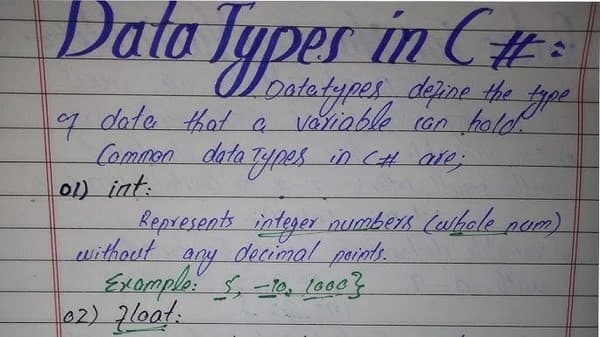 Data Types in C#:
Datatypes define the type
of data that a variable can hold.
Common data Types in C# are;
01) int:
Represents integer numbers (whole num)
without any decimal points.
Example: 5, -10, 1000}
02) float: